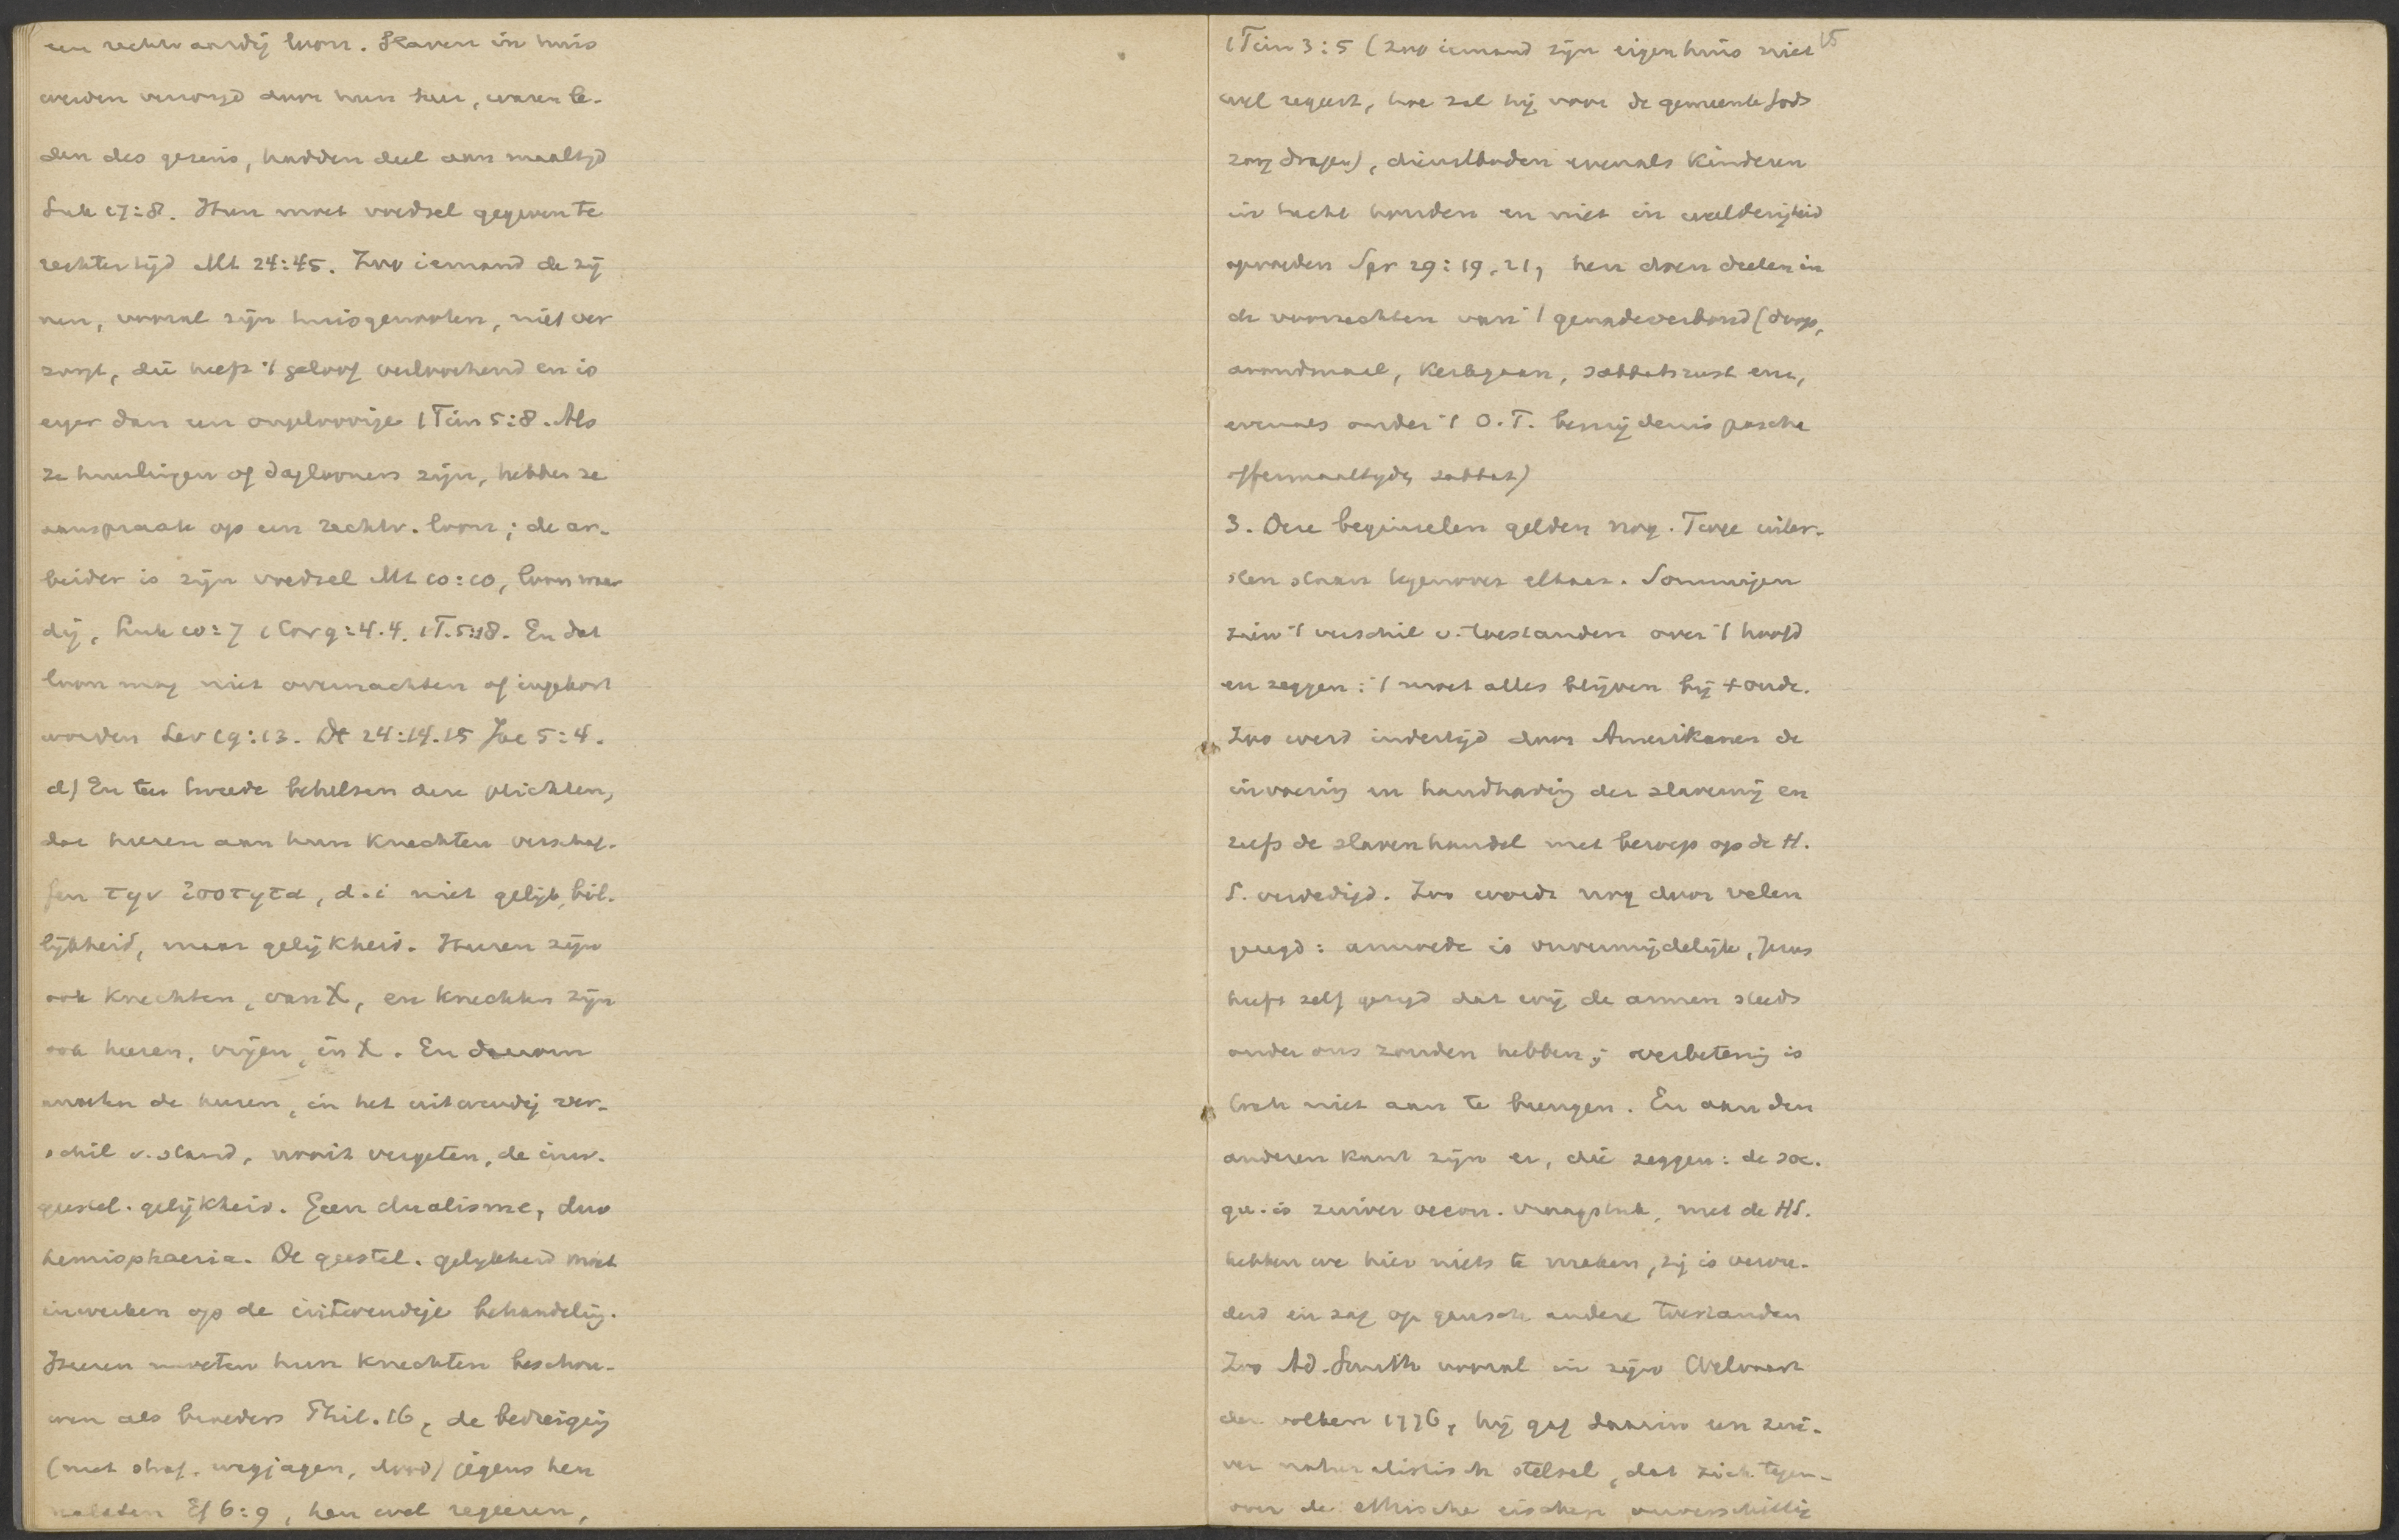 een rechtvaardig loon. Slaven in huis
werden verzorgd door hun heer, waren le-
den des gezins, hadden deel aan maaltijd
Luk 17:8. Hun moet voedsel gegeven te
rechter tijd Mt 24:45. Zoo iemand de zij
nen, vooral zijn huisgenooten, niet ver
zorgt, die heeft 't geloof verloochend en is
erger dan een ongeloovige 1 Tim 5:8. Als
ze huurlingen of daglooners zijn, hebben ze
aanspraak op een rechtv. loon; de ar-
beider is zijn voedsel Mt 10:10, loon waar
dig, Luk 10:7 1 Cor 9:4.4. 1 T. 5:18. En dat
loon mag niet overnachten of ingekort
worden Lev 19:13. Dt 24:14.15 Jac 5:4.
d) En ten tweede behelsen deze plichten,
dat heeren aan hun knechten verschaf-
fen την ισοτητα, d.i niet gelijk, bil-
lijkheid, maar gelijkheid. Heeren zijn
ook knechten, van X, en knechten zijn
ook heeren, vrijen, in X. En daarom
moeten de heeren, in het uitwendig ver-
schil v. stand, nooit vergeten, de inw.
geestel. gelijkheid. Geen dualisme, duo
hemisphaeria. De geestel. gelijkheid moet
inwerken op de uitwendige behandeling.
Heeren moeten hun knechten beschou-
wen als broeders Phil. 16, de bedreiging
(met straf, wegjagen, dood) jegens hen
nalaten Ef 6:9, hen wel regeeren,
1 Tim 3:5 (zoo iemand zijn eigen huis niet 15
wel regeert, hoe zal hij voor de gemeente Gods
zorg dragen), dienstboden evenals kinderen
in tucht houden en niet in weelderigheid
opvoeden Spr 29:19,21, hen doen deelen in
de voorrechten van 't genadeverbond (doop,
avondmaal, kerkgaan, sabbatsrust enz,
evenals onder 't O.T. besnijdenis pascha
offermaaltijden sabbat)
3. Deze beginselen gelden nog. Twee uiter-
sten staan tegenover elkaar. Sommigen
zien 't verschil v. toestanden over 't hoofd
en zeggen: 't moet alles blijven bij t oude.
Zoo werd indertijd door Amerikanen de
invoering en handhaving der slavernij en
zelfs de slavenhandel met beroep op de H.
S. verdedigd. Zoo wordt nog door velen
gezegd: armoede is onvermijdelijk, Jezus
heeft zelf gezegd dat wij de armen steeds
onder ons zouden hebben; verbetering is
toch niet aan te brengen. En aan den
anderen kant zijn er, die zeggen: de soc.
qu. is zuiver oecon. vraagstuk, met de HS.
hebben we hier niets te maken, zij is verou-
derd en zag op gansch andere toestanden
Zoo Ad. Smith vooral in zijn Welvaart
der volken 1776, hij gaf daarin een zui-
ver naturalistisch stelsel, dat zich tegen-
over de ethische eischen onverschillig